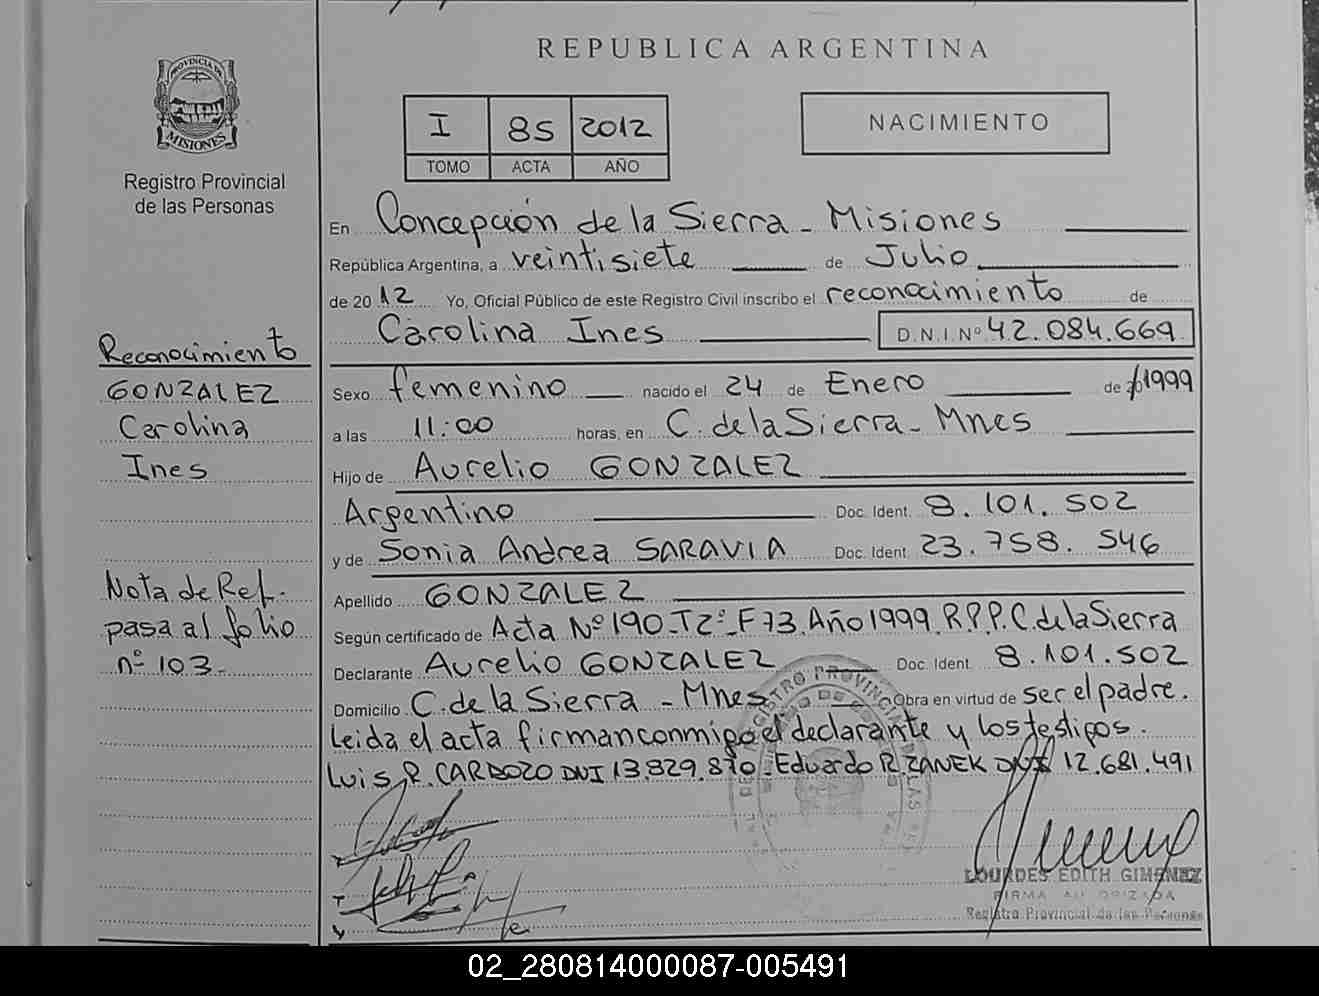 REPUBLICA ARGENTINA
PROVINCIA DE
MISIONES
Registro Provincial
de las Personas
I 85 2012
TOMO ACTA AÑO
NACIMIENTO
En Concepción de la Sierra - Misiones
República Argentina, a veintisiete de Julio
de 2012 Yo, Oficial Público de este Registro Civil inscribo el reconocimiento de
Carolina Ines D.N.I. Nº 42.084.669
Reconocimiento
GONZALEZ
Carolina
Ines
Sexo femenino nacido el 24 de Enero de 20 1999
a las 11:00 horas, en C. de la Sierra - Mnes
Hijo de Aurelio GONZALEZ
Argentino Doc. Ident. 8.101.502
y de Sonia Andrea SARAVIA Doc. Ident. 23.758.546
Nota de Ref.
pasa al folio
nº 103.-
Apellido GONZALEZ
Según certificado de Acta Nº 190-T2º-F73.Año 1999 R.P.P. C. de la Sierra
Declarante Aurelio GONZALEZ Doc. Ident. 8.101.502
Domicilio C. de la Sierra - Mnes Obra en virtud de ser el padre.
Leida el acta firman conmigo el declarante y los testigos.
Luis R. CARDOZO DNI 13.829.870. Eduardo R. ZANEK DNI 12.681.491
LOURDES EDITH GIMENEZ
FIRMA AUTORIZADA
Registro Provincial de las Personas
02_280814000087-005491